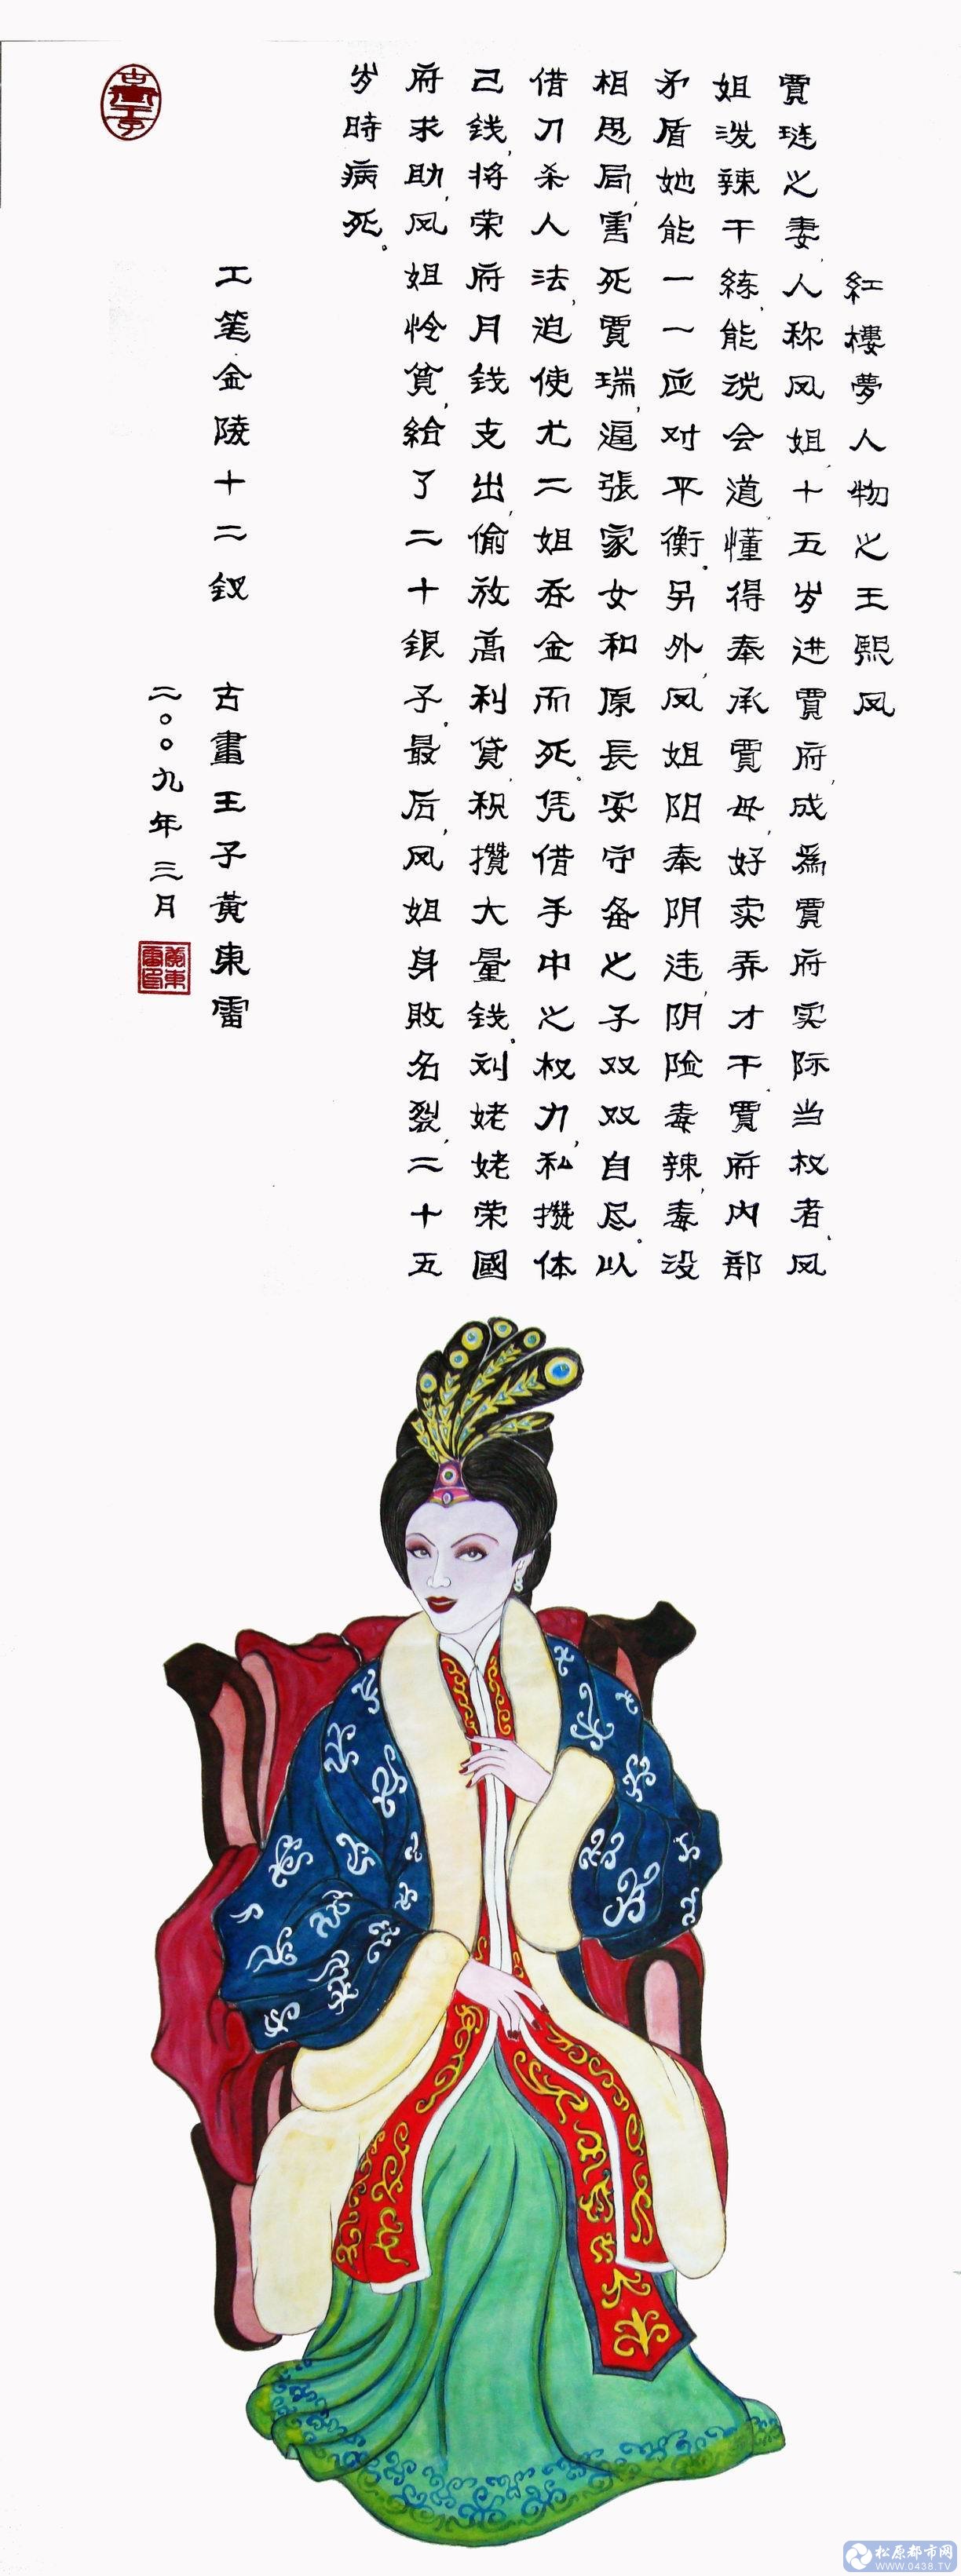 紅樓夢人物之王熙凤
賈琏之妻,人称凤姐,十五岁进賈府,成爲賈府实际当权者,凤
姐泼辣干練,能说会道,懂得奉承賈母,好卖弄才干,賈府内部
矛盾她能一一应对平衡。另外,凤姐阳奉阴违,阴险毒辣,毒没
相思局,害死賈瑞,逼張家女和原長安守备之子双双自尽。以
借刀杀人法,迫使尤二姐吞金而死。凭借手中之权力,私攒体
己钱,将荣府月钱支出,偷放高利贷,积攢大量钱。刘姥姥荣國
府求助,凤姐怜貧,給了二十银子。最后,凤姐身敗名裂,二十五
岁時病死。
工笔金陵十二钗 古畫王子黃東雷
二〇〇九年三月
松原都市网
WWW.0438.TV